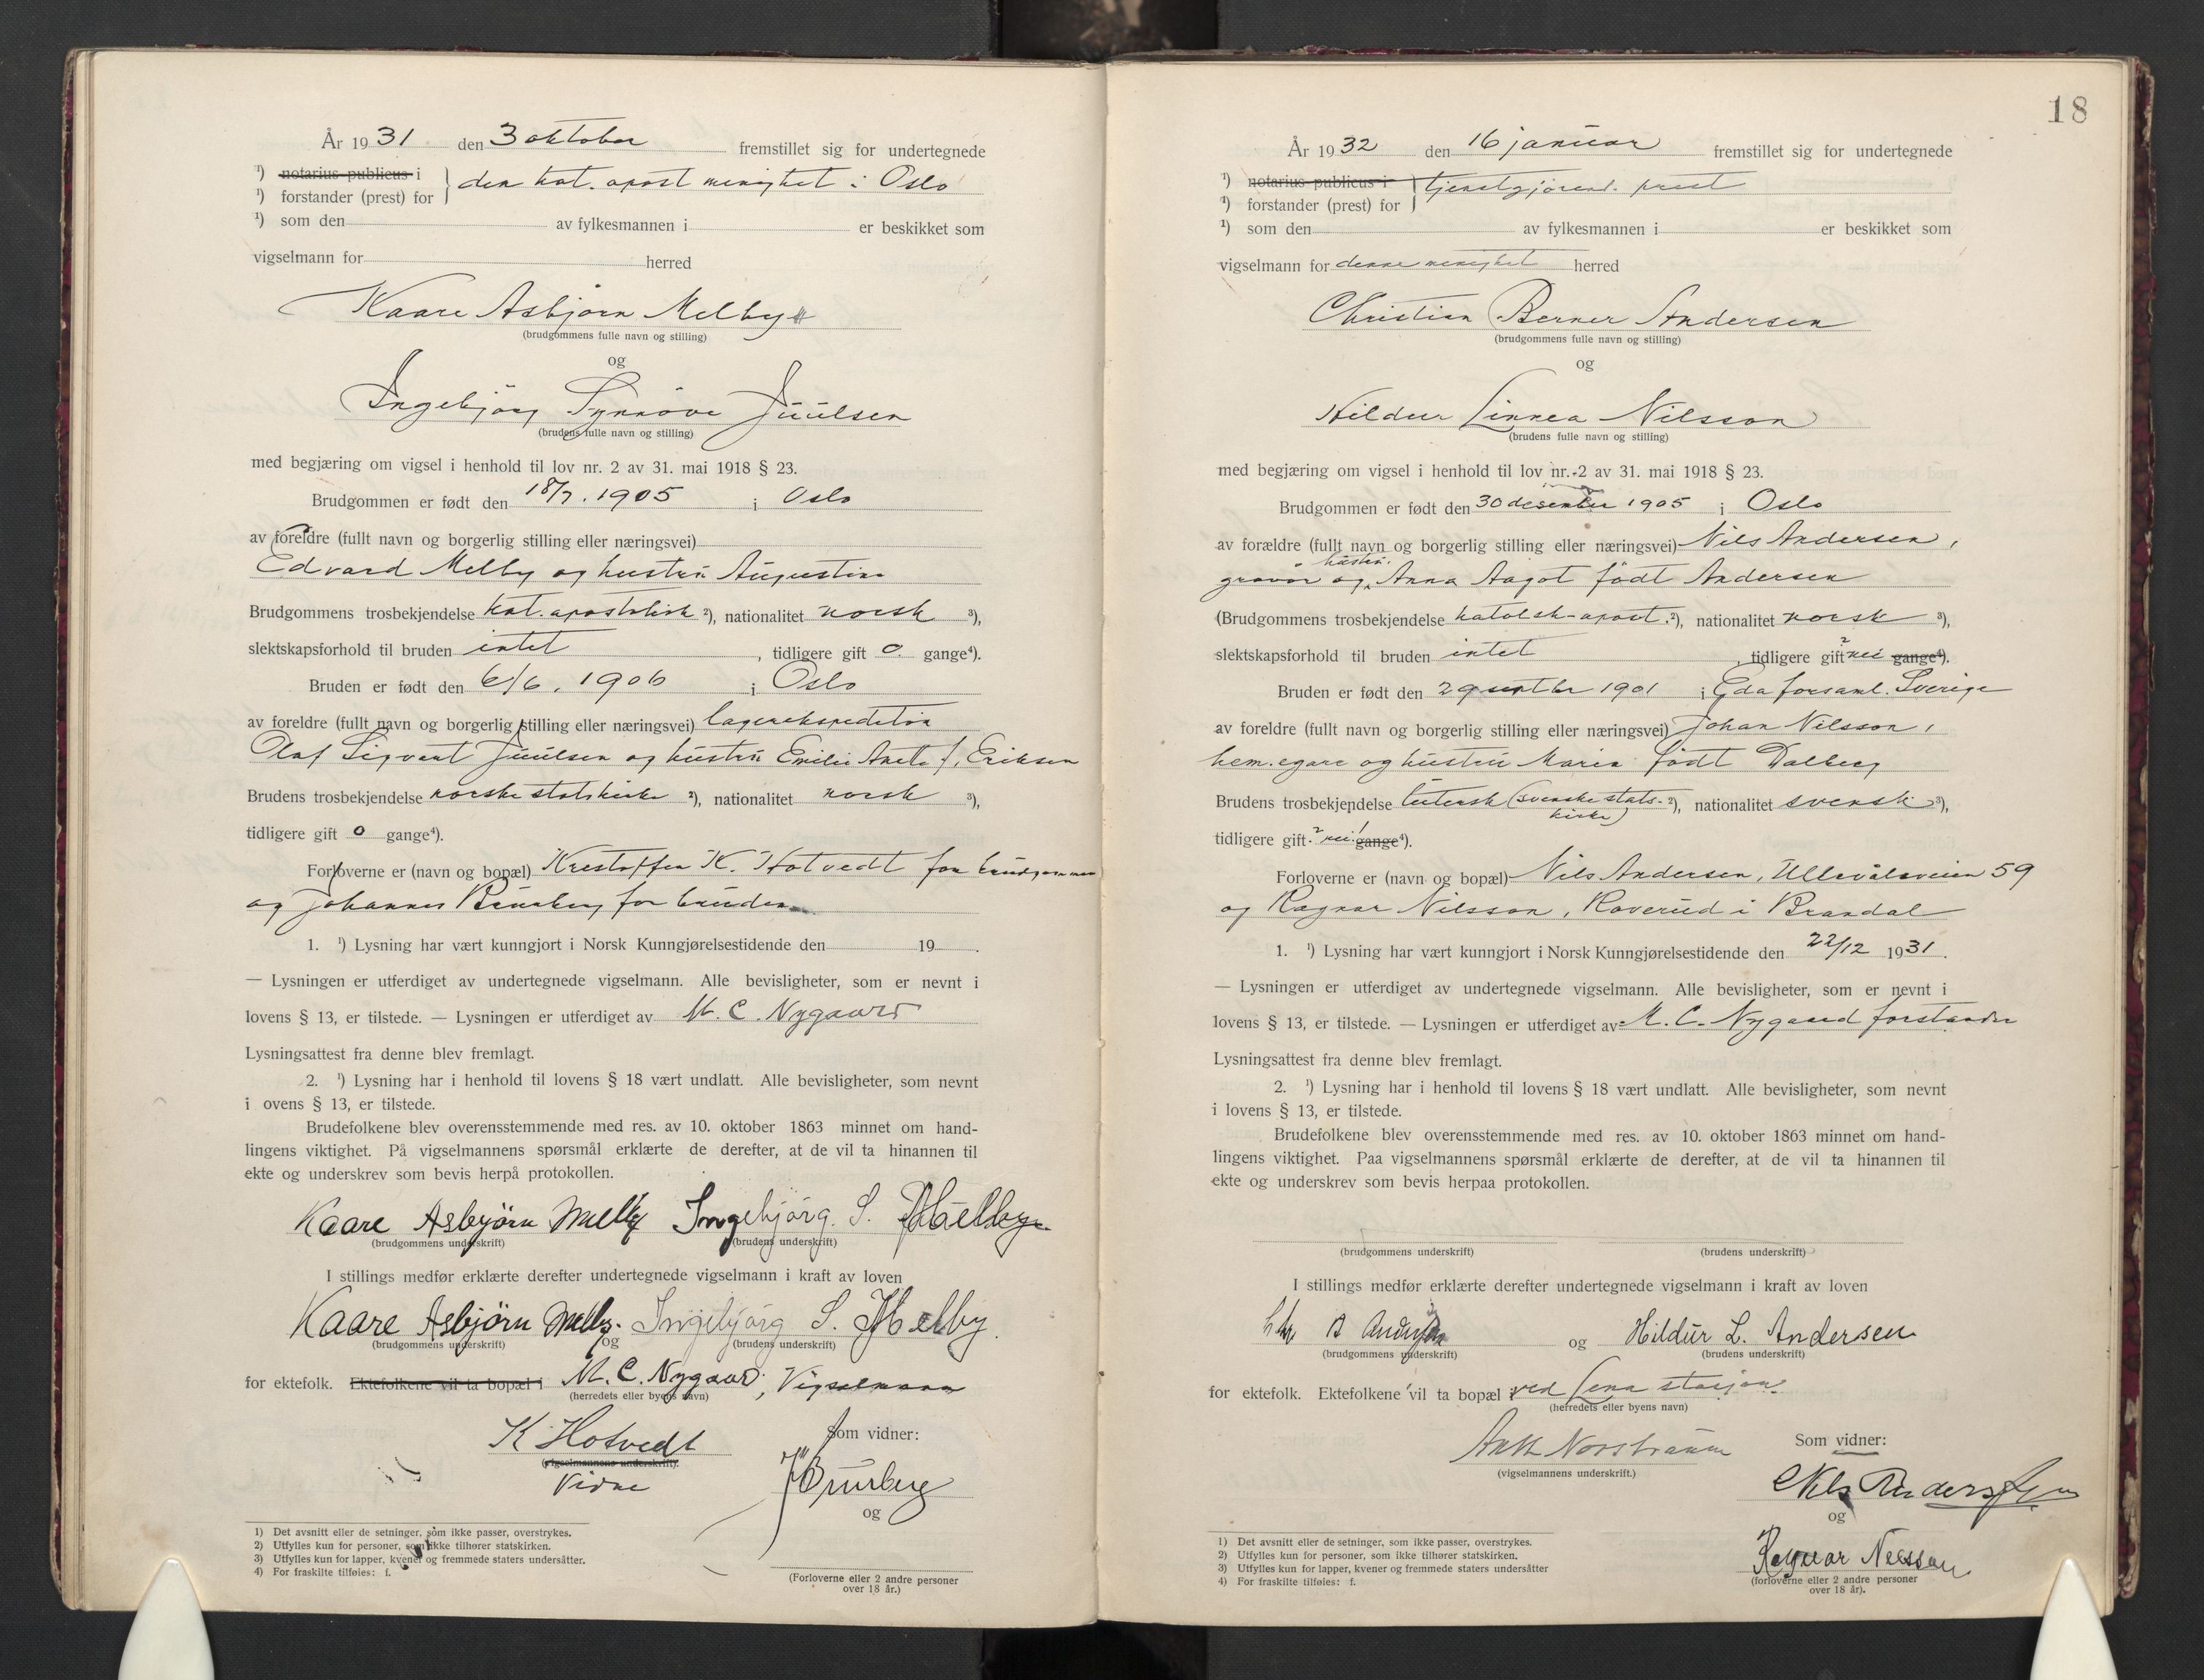 År 1931 den 3 oktober fremstillet sig for undertegnede
¹) notarius publicus i
¹) forstander (prest) for } den kat. apost menighet i Oslo
¹) som den av fylkesmannen i er beskikket som
vigselmann for herred
Kaare Asbjørn Melby
(brudgommens fulle navn og stilling)
og
Ingebjørg Synnøve Juulsen
(brudens fulle navn og stilling)
med begjæring om vigsel i henhold til lov nr. 2 av 31. mai 1918 § 23.
Brudgommen er født den 18/7. 1905 i Oslo
av foreldre (fullt navn og borgerlig stilling eller næringsvei)
Edvard Melby og hustru Augustine
Brudgommens trosbekjendelse kat. apostolisk ²), nationalitet norsk ³),
slektskapsforhold til bruden intet, tidligere gift 0 gange⁴).
Bruden er født den 6/6. 1906 i Oslo
av foreldre (fullt navn og borgerlig stilling eller næringsvei) lagerekspeditør
Olaf Sigvart Juulsen og hustru Emilie Anette f. Eriksen
Brudens trosbekjendelse norske statskirke ²), nationalitet norsk ³),
tidligere gift 0 gange⁴).
Forloverne er (navn og bopæl) Kristoffer K. Hotvedt for brudgommen
og Johannes Bruuberg for bruden
1. ¹) Lysning har vært kunngjort i Norsk Kunngjørelsestidende den 19 .
— Lysningen er utferdiget av undertegnede vigselmann. Alle bevisligheter, som er nevnt i
lovens § 13, er tilstede. — Lysningen er utferdiget av M. C. Nygaard
Lysningsattest fra denne blev fremlagt.
2. ¹) Lysning har i henhold til lovens § 18 vært undlatt. Alle bevisligheter, som nevnt
i ovens § 13, er tilstede.
Brudefolkene blev overensstemmende med res. av 10. oktober 1863 minnet om hand-
lingens viktighet. På vigselmannens spørsmål erklærte de derefter, at de vil ta hinannen til
ekte og underskrev som bevis herpå protokollen.
Kaare Asbjørn Melby Ingebjørg. S. Melby
(brudgommens underskrift) (brudens underskrift)
I stillings medfør erklærte derefter undertegnede vigselmann i kraft av loven
Kaare Asbjørn Melby. Ingebjørg S. Melby.
(brudgommens underskrift) og (brudens underskrift)
for ektefolk. Ektefolkene vil ta bopæl i M. C. Nygaard, Vigselmann
(herredets eller byens navn)
K Hotvedt Som vidner:
(vigselmannens underskrift).
Vidne
og
1) Det avsnitt eller de setninger, som ikke passer, overstrykes.
2) Utfylles kun for personer, som ikke tilhører statskirken.
3) Utfylles kun for lapper, kvener og fremmede staters undersåtter.
4) For fraskilte tilføies: f.
(Forloverne eller 2 andre personer
over 18 år.)
18
År 1932 den 16 januar fremstillet sig for undertegnede
¹) notarius publicus i
¹) forstander (prest) for } tjenestgjørend. prest
¹) som den av fylkesmannen i er beskikket som
vigselmann for denne menighet herred
Christian Berner Andersen
(brudgommens fulle navn og stilling)
og
Hildur Linnea Nilsson
(brudens fulle navn og stilling)
med begjæring om vigsel i henhold til lov nr. 2 av 31. mai 1918 § 23.
Brudgommen er født den 30 desember 1905 i Oslo
av forældre (fullt navn og borgerlig stilling eller næringsvei) Nils Andersen,
gravør og hustru Anna Aagot født Andersen
(Brudgommens trosbekjendelse katolsk-apost. ²), nationalitet norsk ³),
slektskapsforhold til bruden intet, tidligere gift ² nei gange⁴).
Bruden er født den 29 septbr 1901 i Eda forsaml. Sverige
av foreldre (fullt navn og borgerlig stilling eller næringsvei) Johan Nilsson,
hem.egare og hustru Maria født Dalberg
Brudens trosbekjendelse lutersk (svenske stats- ²), nationalitet svensk ³),
kirke)
tidligere gift ² nei gange⁴).
Forloverne er (navn og bopæl) Nils Andersen, Ullevålsveien 59
og Ragnar Nilsson, Roverud i Brandal
1. ¹) Lysning har vært kunngjort i Norsk Kunngjørelsestidende den 22/12 1931.
— Lysningen er utferdiget av undertegnede vigselmann. Alle bevisligheter, som er nevnt i
lovens § 13, er tilstede. — Lysningen er utferdiget av M. C. Nygaard forstander
Lysningsattest fra denne blev fremlagt.
2. ¹) Lysning har i henhold til lovens § 18 vært undlatt. Alle bevisligheter, som nevnt
i lovens § 13, er tilstede.
Brudefolkene blev overensstemmende med res. av 10. oktober 1863 minnet om hand-
lingens viktighet. Paa vigselmannens spørsmål erklærte de derefter, at de vil ta hinannen til
ekte og underskrev som bevis herpaa protokollen.
(brudgommens underskrift) (brudens underskrift)
I stillings medfør erklærte derefter undertegnede vigselmann i kraft av loven
Chr B Andersen og Hildur L. Andersen
(brudgommens underskrift) (brudens underskrift)
for ektefolk. Ektefolkene vil ta bopæl i ved Lena stasjon
(herredets eller byens navn)
Som vidner:
(vigselmannens underskrift.)
Nils Andersen
og
Ragnar Nilsson
(forloverne eller 2 andre personer
over 18 år).
1) Det avsnitt eller de setninger, som ikke passer, overstrykes.
2) Utfylles kun for personer, som ikke tilhører statskirken.
3) Utfylles kun for lapper, kvener og fremmede staters undersåtter
4) For fraskilte tilføies: f.